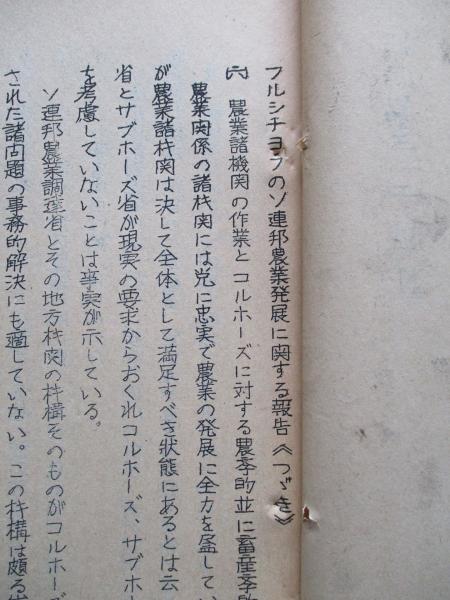 フルシチヨフのソ連邦農業発展に関する報告《つゞき》
㈥ 農業諸機関の作業とコルホーズに対する農学的並に畜産学的
農業関係の諸机関には党に忠実で農業の発展に全力を盡してい
が農業諸机関は決して全体として満足すべき狀態にあるとは云
省とサブホーズ省が現実の要求からおくれコルホーズ、サブホー
を考慮していないことは事実が示している。
ソ連邦農業調達省とその地方机関の机構そのものがコルホーズ
された諸問題の事務的解決にも適していない。この机構は頗る